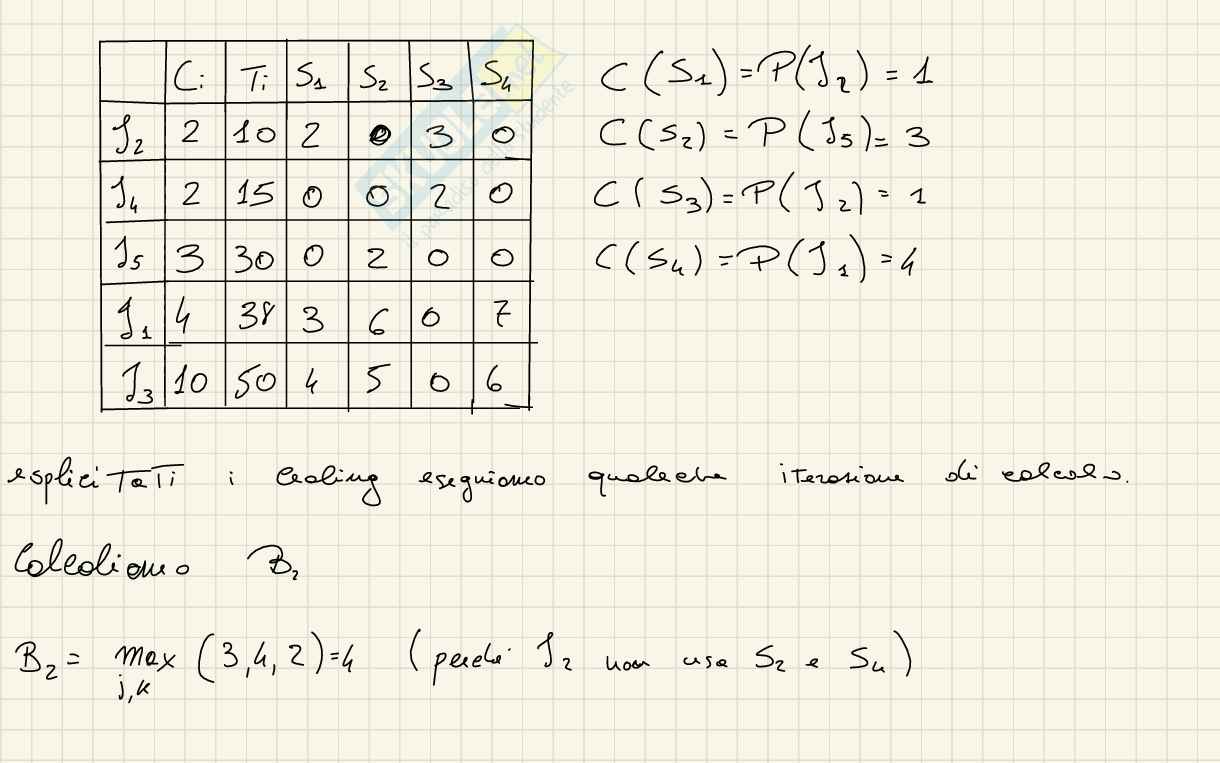 Ci Ti S1 S2 S3 S4
J2 2 10 2 0 3 0
J4 2 15 0 0 2 0
J5 3 30 0 2 0 0
J1 4 38 3 6 0 7
J3 10 50 4 5 0 6
C(S1) = P(J2) = 1
C(S2) = P(J5) = 3
C(S3) = P(J2) = 1
C(S4) = P(J1) = 4
esplicitati i ceoling eseguiamo qualche iterazione di calcolo.
Calcoliamo B2
B2 = max (3,4,2) = 4 (perchè J2 non usa S2 e S4)
j,k